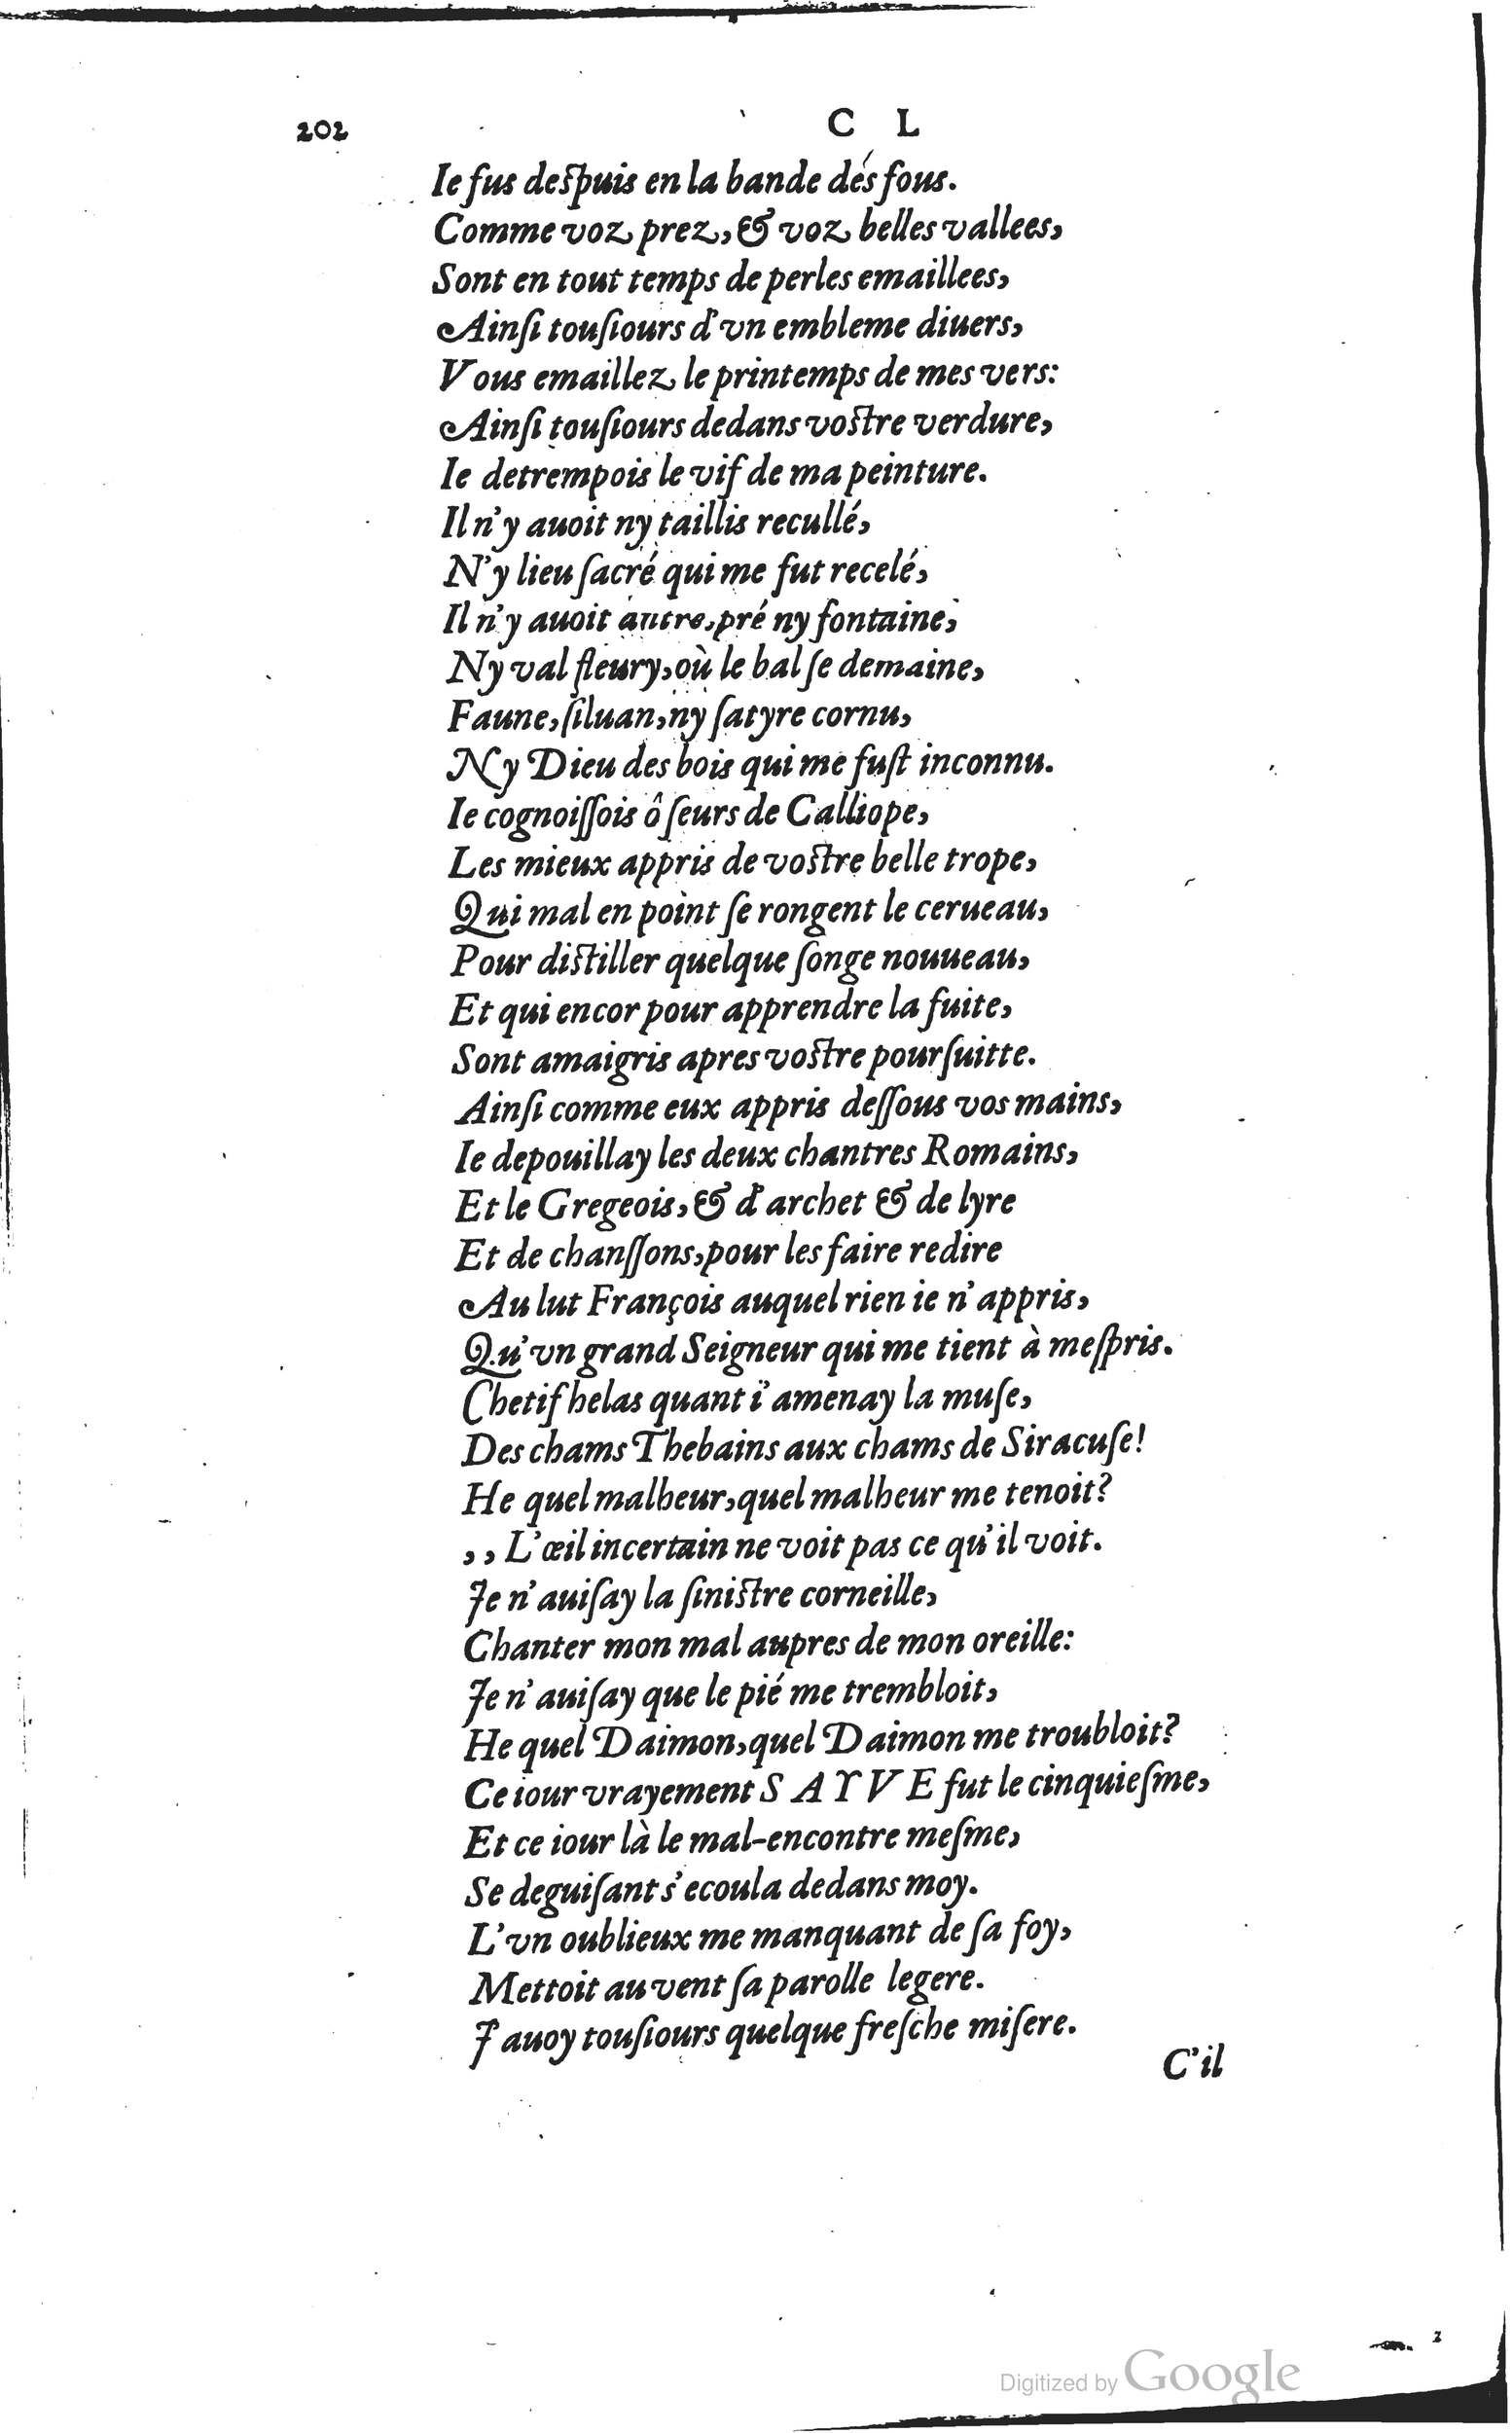 202 C L
Ie fus deſpuis en la bande dés fous.
Comme voz prez, & voz belles vallees,
Sont en tout temps de perles emaillees,
Ainſi touſiours d'vn embleme diuers,
Vous emaillez le printemps de mes vers:
Ainſi touſiours dedans voſtre verdure,
Ie detrempois le vif de ma peinture.
Il n'y auoit ny taillis recullé,
N'y lieu ſacré qui me fut recelé,
Il n'y auoit antre, pré ny fontaine,
Ny val fleury, où le bal ſe demaine,
Faune, ſiluan, ny ſatyre cornu,
Ny Dieu des bois qui me fuſt inconnu.
Ie cognoiſſois ô ſeurs de Calliope,
Les mieux appris de voſtre belle trope,
Qui mal en point ſe rongent le cerueau,
Pour diſtiller quelque ſonge nouueau,
Et qui encor pour apprendre la fuite,
Sont amaigris apres voſtre pourſuitte.
Ainſi comme eux appris deſſous vos mains,
Ie depouillay les deux chantres Romains,
Et le Gregeois, & d'archet & de lyre
Et de chanſſons, pour les faire redire
Au lut François auquel rien ie n'appris,
Qu'vn grand Seigneur qui me tient à meſpris.
Chetif helas quant i'amenay la muſe,
Des chams Thebains aux chams de Siracuſe!
He quel malheur, quel malheur me tenoit?
,, L'œil incertain ne voit pas ce qu'il voit.
Je n'auiſay la ſiniſtre corneille,
Chanter mon mal aupres de mon oreille:
Je n'auiſay que le pié me trembloit,
He quel Daimon, quel Daimon me troubloit?
Ce iour vrayement SAYVE fut le cinquieſme,
Et ce iour là le mal-encontre meſme,
Se deguiſant s'ecoula dedans moy.
L'vn oublieux me manquant de ſa foy,
Mettoit au vent ſa parolle legere.
J'auoy touſiours quelque freſche miſere.
C'il
Digitized by Google